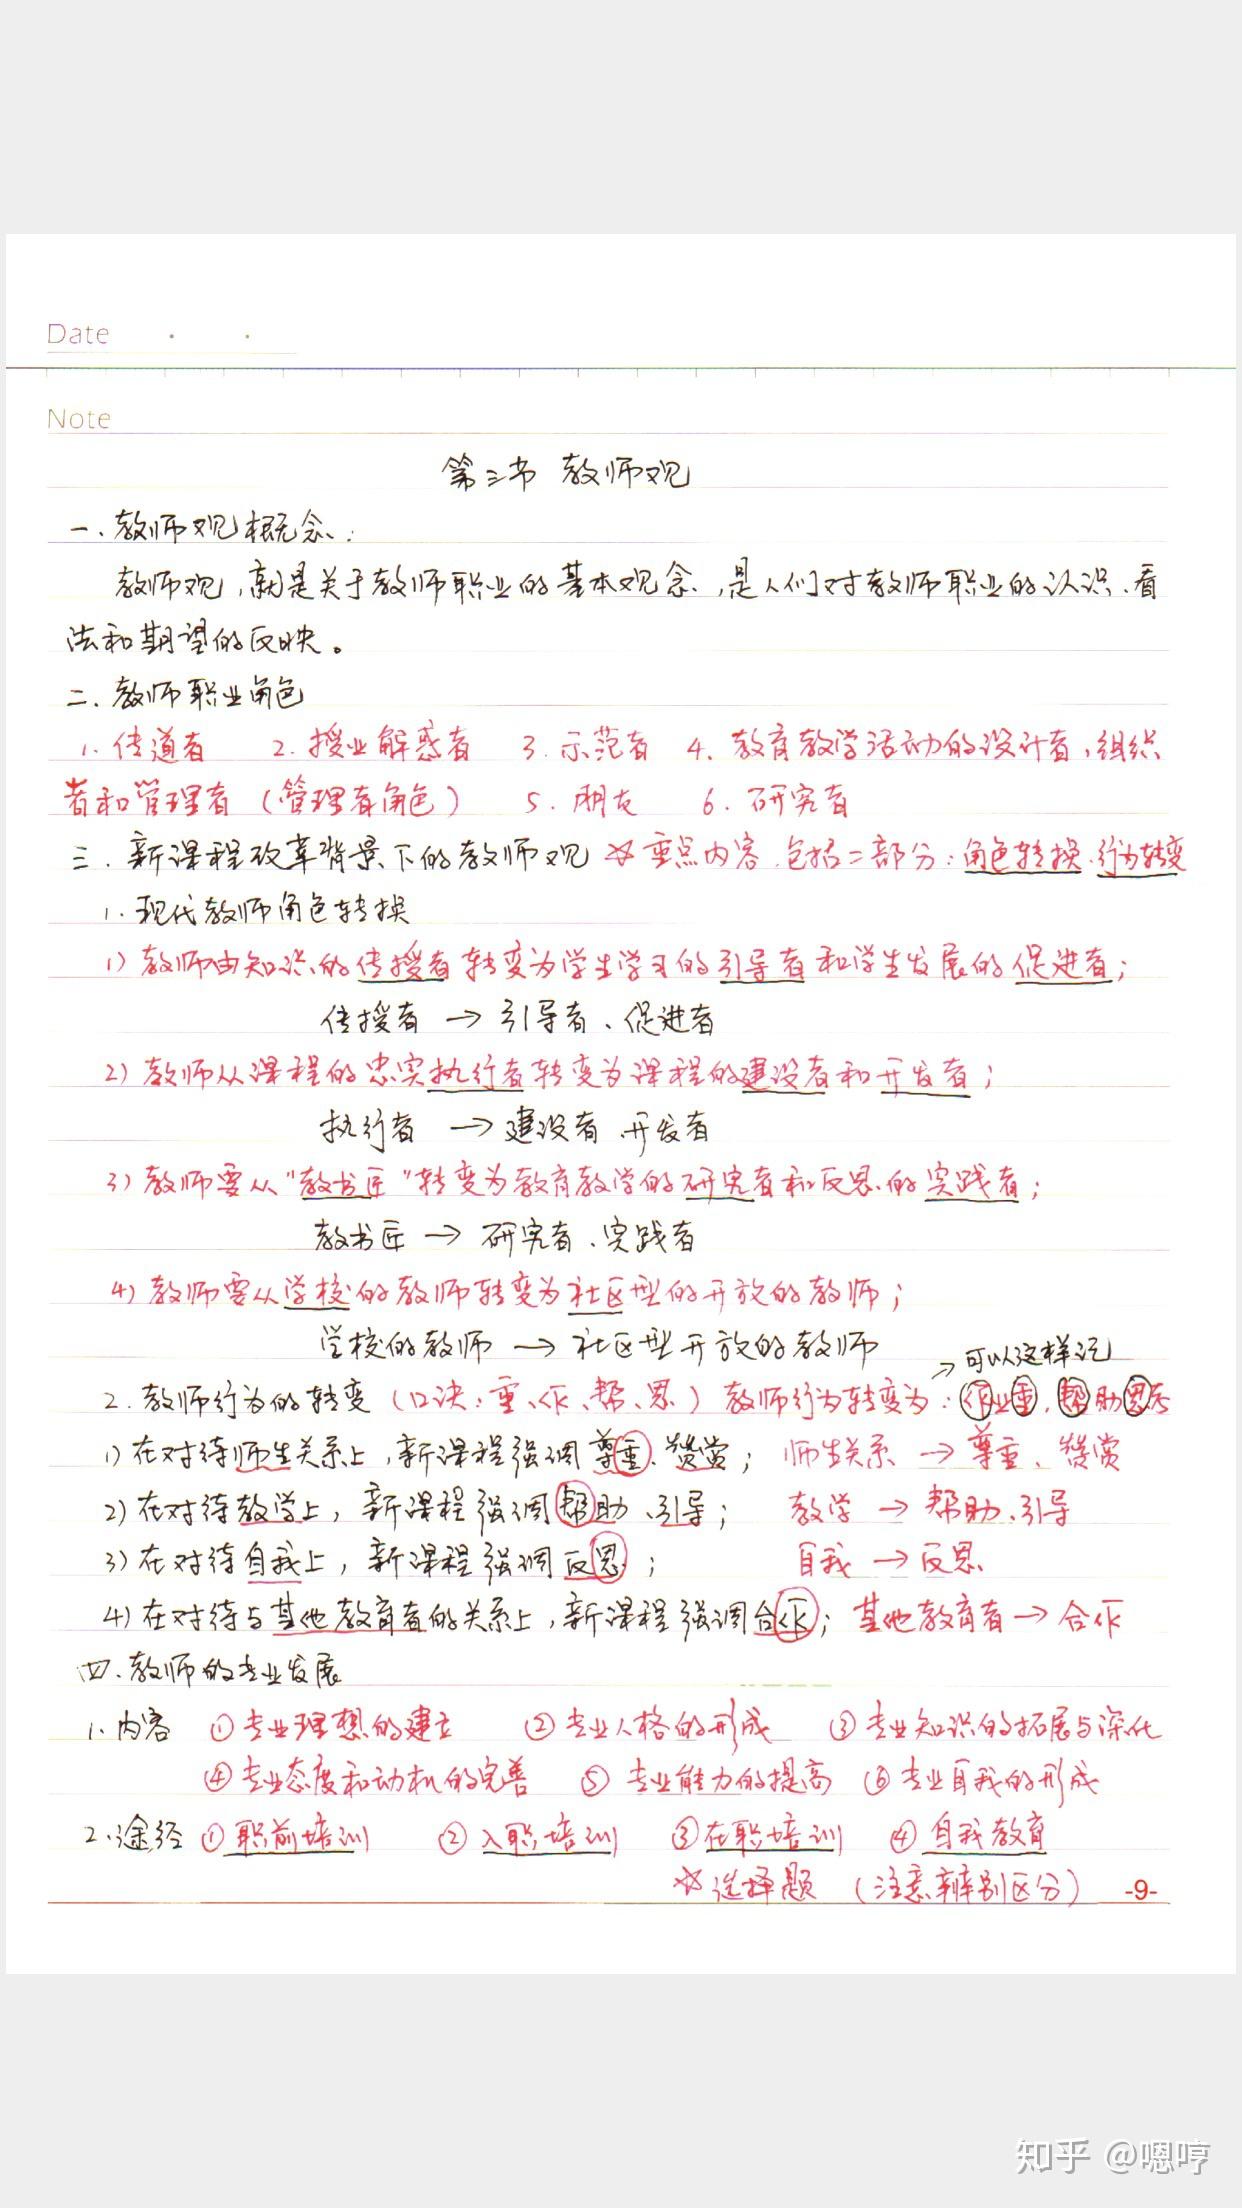 Date
Note
第三节 教师观
一、教师观概念:
教师观,就是关于教师职业的基本观念,是人们对教师职业的认识、看
法和期望的反映。
二、教师职业角色
1. 传道者 2. 授业解惑者 3. 示范者 4. 教育教学活动的设计者、组织
者和管理者(管理者角色) 5. 朋友 6. 研究者
三、新课程改革背景下的教师观 ☆重点内容,包括二部分:角色转换、行为转变
1. 现代教师角色转换
1) 教师由知识的传授者转变为学生学习的引导者和学生发展的促进者;
传授者 → 引导者、促进者
2) 教师从课程的忠实执行者转变为课程的建设者和开发者;
执行者 → 建设者、开发者
3) 教师要从“教书匠”转变为教育教学的研究者和反思的实践者;
教书匠 → 研究者、实践者
4) 教师要从学校的教师转变为社区型的开放的教师;
学校的教师 → 社区型开放的教师
→ 可以这样记
2. 教师行为的转变 (口诀:重、作、帮、思) 教师行为转变为:作业重,帮助思考
1) 在对待师生关系上,新课程强调尊重、赞赏; 师生关系 → 尊重、赞赏
2) 在对待教学上,新课程强调帮助、引导; 教学 → 帮助、引导
3) 在对待自我上,新课程强调反思; 自我 → 反思
4) 在对待与其他教育者的关系上,新课程强调合作; 其他教育者 → 合作
四、教师的专业发展
1. 内容 ①专业理想的建立 ②专业人格的形成 ③专业知识的拓展与深化
④专业态度和动机的完善 ⑤专业能力的提高 ⑥专业自我的形成
2. 途经 ①职前培训 ②入职培训 ③在职培训 ④自我教育
☆选择题 (注意辨别区分) -9-
知乎 @嗯哼